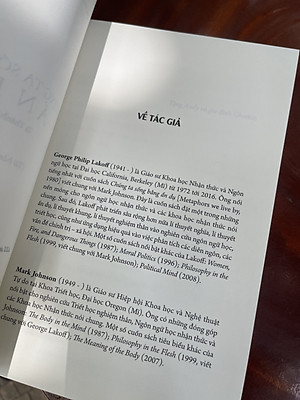 VỀ TÁC GIẢ
George Philip Lakoff (1941 - ) là Giáo sư Khoa học Nhận thức và Ngôn
ngữ học tại Đại học California, Berkeley (Mĩ) từ 1972 tới 2016. Ông nổi
tiếng nhất với cuốn sách Chúng ta sống bằng ẩn dụ [Metaphors we live by,
1980] viết chung với Mark Johnson. Đây là cuốn sách đặt một trong những
nền móng cho ngôn ngữ học nhận thức và các khoa học nhận thức nói
chung. Sau đó, Lakoff phát triển sâu rộng hơn nữa lí thuyết nghĩa, lí thuyết
ẩn dụ, lí thuyết nghiệm thân vào nghiên cứu ngôn ngữ học,
triết học, cũng như ứng dụng hiệu quả vào việc phân tích các diễn ngôn, các
vấn đề chính trị - xã hội. Một số cuốn sách nổi bật khác của Lakoff: Women,
Fire, and Dangerous Things (1987); Moral Politics (1996); Philosophy in the
Flesh (1999, viết chung với Mark Johnson); Political Mind (2008).
Mark Johnson (1949 - ) là Giáo sư Hiệp hội Khoa học và Nghệ thuật
Tự do tại Khoa Triết học, Đại học Oregon (Mĩ). Ông có những đóng góp
nổi bật cho nghiên cứu Triết học nghiệm thân, Ngôn ngữ học nhận thức và
các Khoa học Nhận thức nói chung. Một số cuốn sách tiêu biểu khác của
Johnson: The Body in the Mind (1987); Philosophy in the Flesh (1999, viết
chung với George Lakoff); The Meaning of the Body (2007).